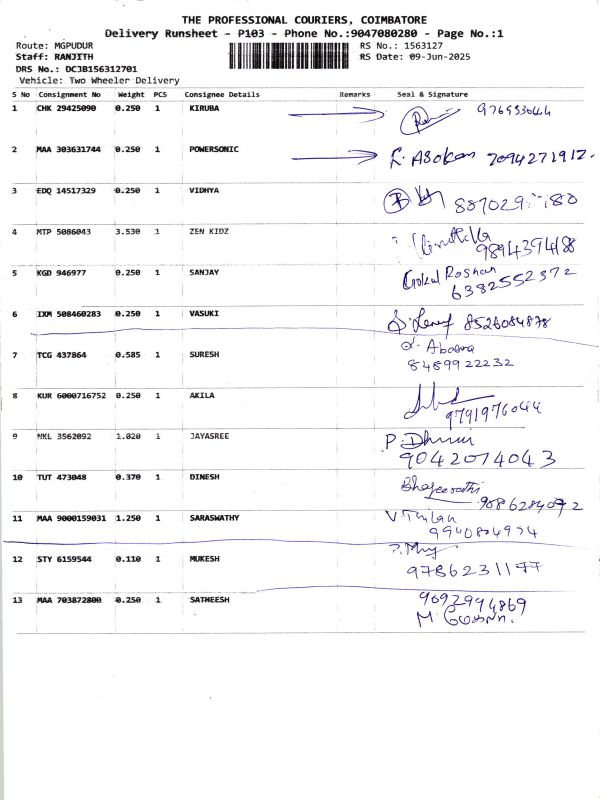 THE PROFESSIONAL COURIERS, COIMBATORE
Delivery Runsheet - P103 - Phone No.:9047080280 - Page No.:1
Route: MGPUDUR RS No.: 1563127
Staff: RANJITH RS Date: 09-Jun-2025
DRS No.: DCJB156312701
Vehicle: Two Wheeler Delivery
S No Consignment No Weight PCS Consignee Details Remarks Seal & Signature
1 CHK 29425090 0.250 1 KIRUBA
2 MAA 303631744 0.250 1 POWERSONIC
L. Asokan 7094271912.
3 EDQ 14517329 0.250 1 VIDHYA
4 MTP 5086043 3.530 1 ZEN KIDZ
5 KGD 946977 0.250 1 SANJAY
Gokul Roshan
6382552372
6 IXM 508460283 0.250 1 VASUKI
8526084878
7 TCG 437864 0.585 1 SURESH
8489922232
8 KUR 6000716752 0.250 1 AKILA
9791976044
9 NKL 3562092 1.020 1 JAYASREE
P. Dhmi
9042074043
10 TUT 473048 0.370 1 DINESH
Bhageerathi
9086284072
11 MAA 9000159031 1.250 1 SARASWATHY
9940804954
12 STY 6159544 0.110 1 MUKESH
9786231177
13 MAA 703872800 0.250 1 SATHEESH
9092994869